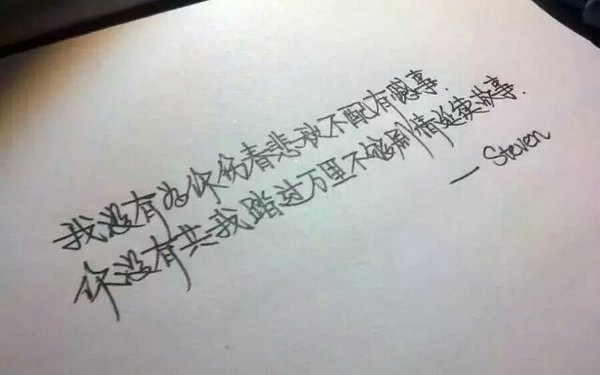 我没有为你伤春悲秋不配有憾事.
你没有共我踏过万里不够剧情延续故事.
— Steven